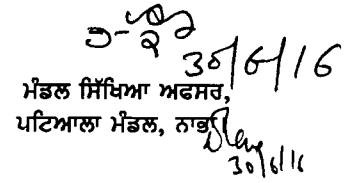 30/6/16
ਮੰਡਲ ਸਿੱਖਿਆ ਅਫਸਰ,
ਪਟਿਆਲਾ ਮੰਡਲ, ਨਾਭਾ
30/6/16